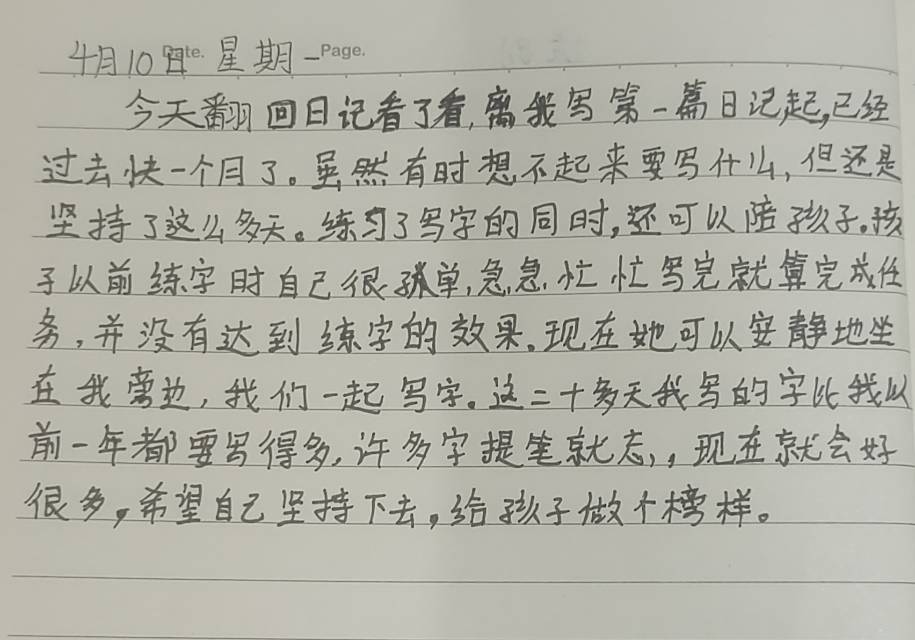 4月10日 Date. 星期一 Page.
今天翻回日记看了看,离我写第一篇日记起,已经
过去快一个月了。虽然有时想不起来要写什么,但还是
坚持了这么多天。练习了写字的同时,还可以陪孩子。孩
子以前练字时自己很孤单,急急忙忙写完就算完成任
务,并没有达到练字的效果。现在她可以安静地坐
在我旁边,我们一起写字。这二十多天我写的字比我以
前一年都要写得多,许多字提笔就忘,,现在就会好
很多。希望自己坚持下去,给孩子做个榜样。